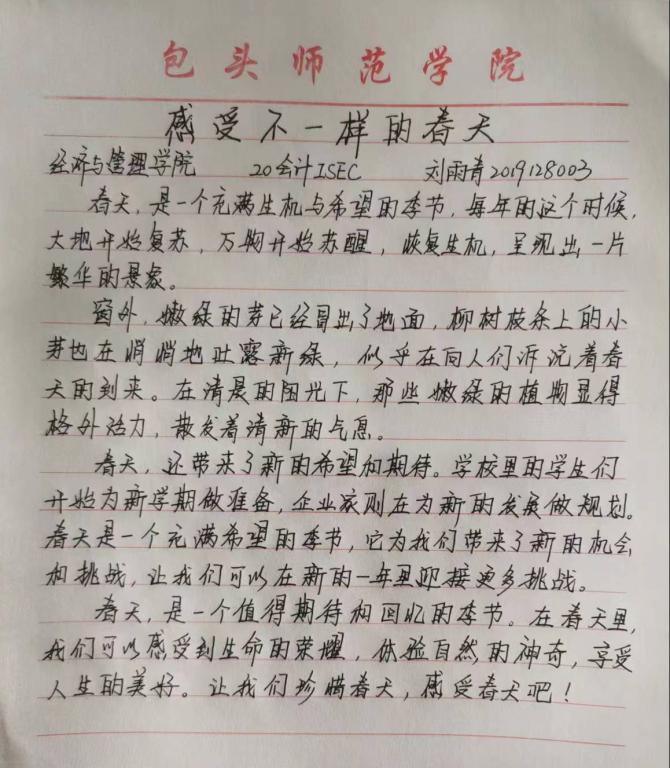 包头师范学院
感受不一样的春天
经济与管理学院 20会计ISEC 刘雨青2019128003
春天，是一个充满生机与希望的季节，每年的这个时候，
大地开始复苏，万物开始苏醒，恢复生机，呈现出一片
繁华的景象。
窗外，嫩绿的芽已经冒出了地面，柳树枝条上的小
芽也在悄悄地吐露新绿，似乎在向人们诉说着春
天的到来。在清晨的阳光下，那些嫩绿的植物显得
格外活力，散发着清新的气息。
春天，还带来了新的希望和期待。学校里的学生们
开始为新学期做准备，企业家则在为新的发展做规划。
春天是一个充满希望的季节，它为我们带来了新的机会
和挑战，让我们可以在新的一年里迎接更多挑战。
春天，是一个值得期待和回忆的季节。在春天里，
我们可以感受到生命的荣耀，体验自然的神奇，享受
人生的美好。让我们珍惜春天，感受春天吧！